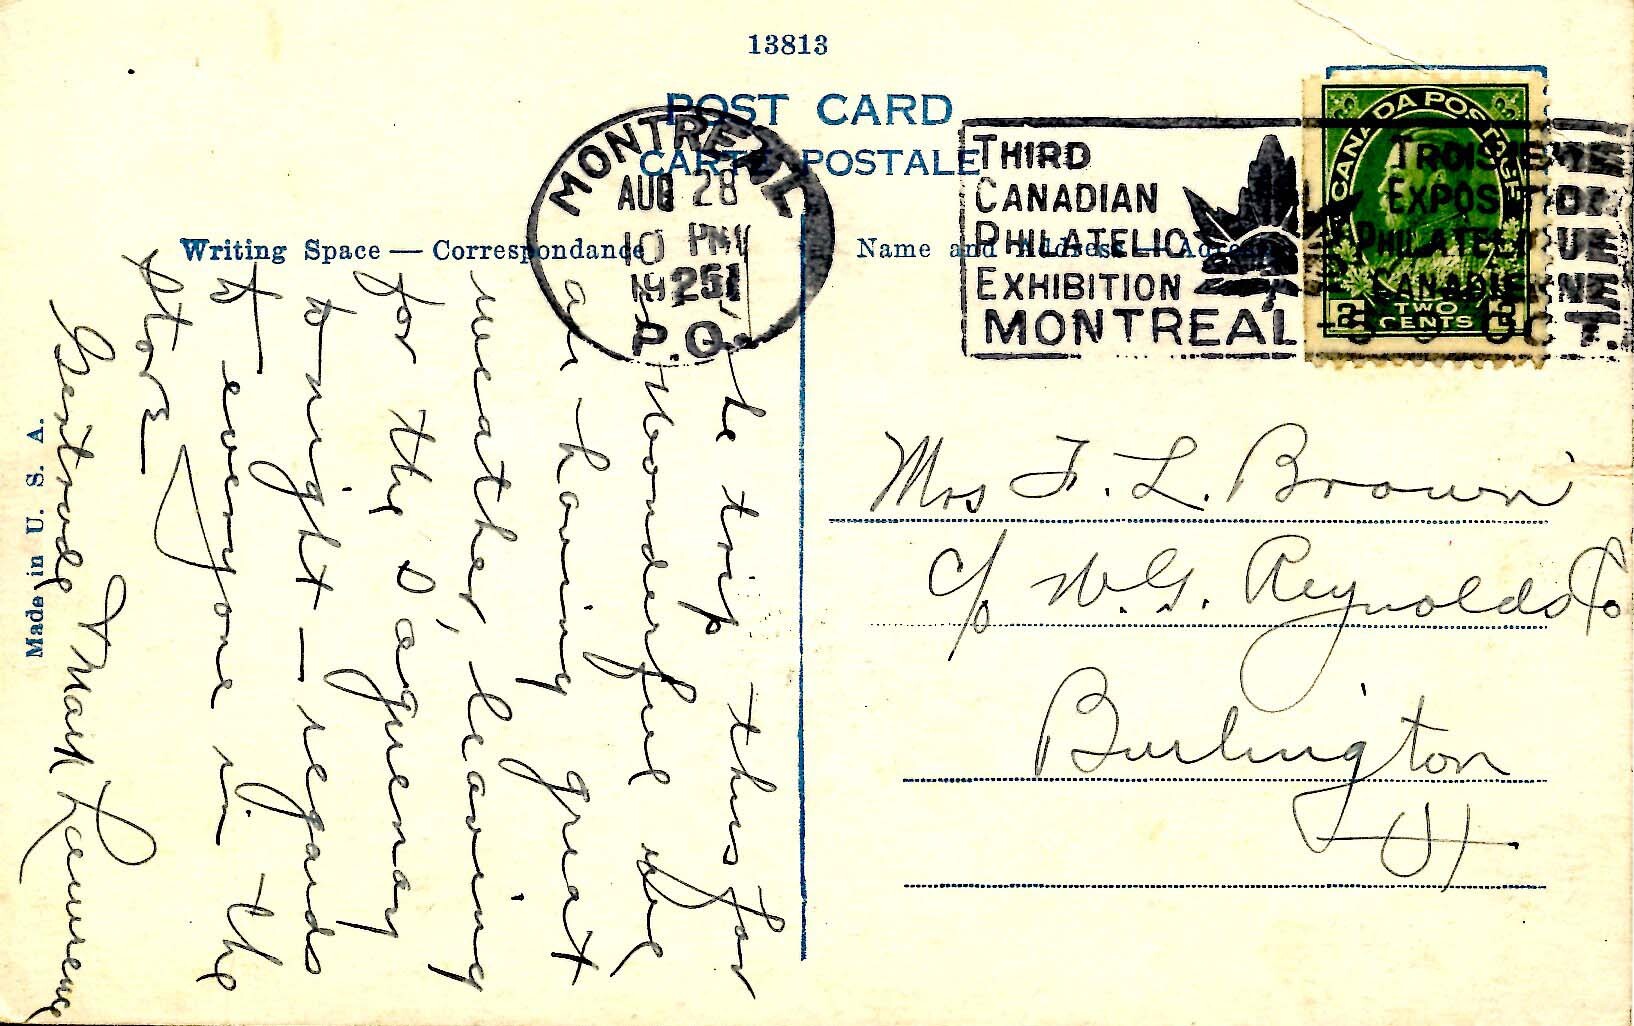 13813
POST CARD
CARTE POSTALE
MONTREAL
AUG 28
10 PM
1925
P.Q.
THIRD
CANADIAN
PHILATELIC
EXHIBITION
MONTREAL
TROISIEME
EXPOSITION
PHILATELIQUE
CANADIENNE
OCT.
CANADA POSTAGE
2 TWO CENTS 2
Writing Space — Correspondance
Name and Address — Adresse
Made in U. S. A.
The trip thus far
is wonderful we
are having great
weather, leaving
for the Saguenay
tonight — regards
to everyone in the
store
Gertrude & Mark Lawrence
Mrs F. L. Brown
c/o W. G. Reynolds Co
Burlington
Vt.